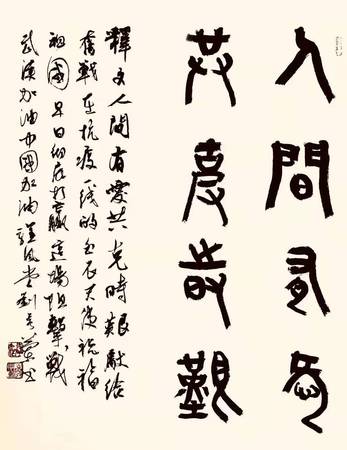 人間有愛
共克時艱
釋文人間有愛共克時艱献給
奮戰在抗疫一线的白衣天使祝福
祖國早日彻底打贏這場阻擊戰
武漢加油中國加油